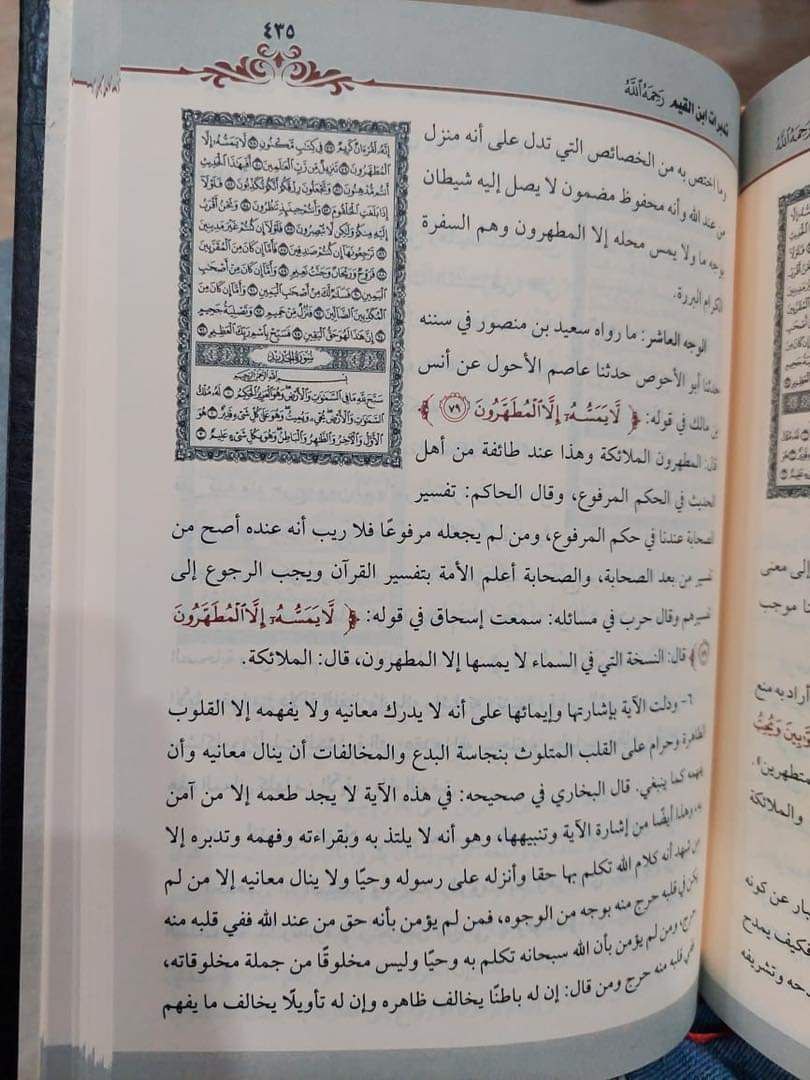 ٤٣٥
تدبرات ابن القيم رَحِمَهُ ٱللَّهُ
وما اختص به من الخصائص التي تدل على أنه منزل
من عند الله وأنه محفوظ مضمون لا يصل إليه شيطان
بوجه ما ولا يمس محله إلا المطهرون وهم السفرة
الكرام البررة.
الوجه العاشر: ما رواه سعيد بن منصور في سننه
حدثنا أبو الأحوص حدثنا عاصم الأحول عن أنس
بن مالك في قوله: ﴿ لَّا يَمَسُّهُۥٓ إِلَّا ٱلْمُطَهَّرُونَ ٧٩ ﴾
قال: المطهرون الملائكة وهذا عند طائفة من أهل
الحديث في الحكم المرفوع، وقال الحاكم: تفسير
الصحابة عندنا في حكم المرفوع، ومن لم يجعله مرفوعًا فلا ريب أنه عنده أصح من
تفسير من بعد الصحابة، والصحابة أعلم الأمة بتفسير القرآن ويجب الرجوع إلى
تفسيرهم وقال حرب في مسائله: سمعت إسحاق في قوله: ﴿ لَّا يَمَسُّهُۥٓ إِلَّا ٱلْمُطَهَّرُونَ
٧٩ ﴾ قال: النسخة التي في السماء لا يمسها إلا المطهرون، قال: الملائكة.
٦- ودلت الآية بإشارتها وإيمائها على أنه لا يدرك معانيه ولا يفهمه إلا القلوب
الطاهرة وحرام على القلب المتلوث بنجاسة البدع والمخالفات أن ينال معانيه وأن
يفهمه كما ينبغي. قال البخاري في صحيحه: في هذه الآية لا يجد طعمه إلا من آمن
به، وهذا أيضًا من إشارة الآية وتنبيهها، وهو أنه لا يلتذ به وبقراءته وفهمه وتدبره إلا
من شهد أنه كلام الله تكلم بها حقا وأنزله على رسوله وحيًا ولا ينال معانيه إلا من لم
يكن في قلبه حرج منه بوجه من الوجوه، فمن لم يؤمن بأنه حق من عند الله ففي قلبه منه
حرج، ومن لم يؤمن بأن الله سبحانه تكلم به وحيًا وليس مخلوقًا من جملة مخلوقاته،
ففي قلبه منه حرج ومن قال: إن له باطنًا يخالف ظاهره وإن له تأويلًا يخالف ما يفهم
إِنَّهُۥ لَقُرْءَانٌ كَرِيمٌ ٧٧ فِي كِتَٰبٍ مَّكْنُونٍ ٧٨ لَّا يَمَسُّهُۥٓ إِلَّا
ٱلْمُطَهَّرُونَ ٧٩ تَنزِيلٌ مِّن رَّبِّ ٱلْعَٰلَمِينَ ٨٠ أَفَبِهَٰذَا ٱلْحَدِيثِ
أَنتُم مُّدْهِنُونَ ٨١ وَتَجْعَلُونَ رِزْقَكُمْ أَنَّكُمْ تُكَذِّبُونَ ٨٢ فَلَوْلَآ
إِذَا بَلَغَتِ ٱلْحُلْقُومَ ٨٣ وَأَنتُمْ حِينَئِذٍ تَنظُرُونَ ٨٤ وَنَحْنُ أَقْرَبُ
إِلَيْهِ مِنكُمْ وَلَٰكِن لَّا تُبْصِرُونَ ٨٥ فَلَوْلَآ إِن كُنتُمْ غَيْرَ مَدِينِينَ
٨٦ تَرْجِعُونَهَآ إِن كُنتُمْ صَٰدِقِينَ ٨٧ فَأَمَّآ إِن كَانَ مِنَ ٱلْمُقَرَّبِينَ
٨٨ فَرَوْحٌ وَرَيْحَانٌ وَجَنَّتُ نَعِيمٍ ٨٩ وَأَمَّآ إِن كَانَ مِنْ أَصْحَٰبِ
ٱلْيَمِينِ ٩٠ فَسَلَٰمٌ لَّكَ مِنْ أَصْحَٰبِ ٱلْيَمِينِ ٩١ وَأَمَّآ إِن كَانَ مِنَ
ٱلْمُكَذِّبِينَ ٱلضَّآلِّينَ ٩٢ فَنُزُلٌ مِّنْ حَمِيمٍ ٩٣ وَتَصْلِيَةُ جَحِيمٍ
٩٤ إِنَّ هَٰذَا لَهُوَ حَقُّ ٱلْيَقِينِ ٩٥ فَسَبِّحْ بِٱسْمِ رَبِّكَ ٱلْعَظِيمِ ٩٦
سُورَةُ الحَدِيدِ
بِسْمِ ٱللَّهِ ٱلرَّحْمَٰنِ ٱلرَّحِيمِ
سَبَّحَ لِلَّهِ مَا فِي ٱلسَّمَٰوَٰتِ وَٱلْأَرْضِ وَهُوَ ٱلْعَزِيزُ ٱلْحَكِيمُ ١ لَهُۥ مُلْكُ
ٱلسَّمَٰوَٰتِ وَٱلْأَرْضِ يُحْيِۦ وَيُمِيتُ وَهُوَ عَلَىٰ كُلِّ شَيْءٍ قَدِيرٌ ٢ هُوَ
ٱلْأَوَّلُ وَٱلْءَاخِرُ وَٱلظَّٰهِرُ وَٱلْبَاطِنُ وَهُوَ بِكُلِّ شَيْءٍ عَلِيمٌ ٣
رَحِمَهُ ٱللَّهُ
إلى معنى
موجب
أراد به منع
متطهرين».
والملائكة
عن كونه
فكيف يمدح
وتشريفه